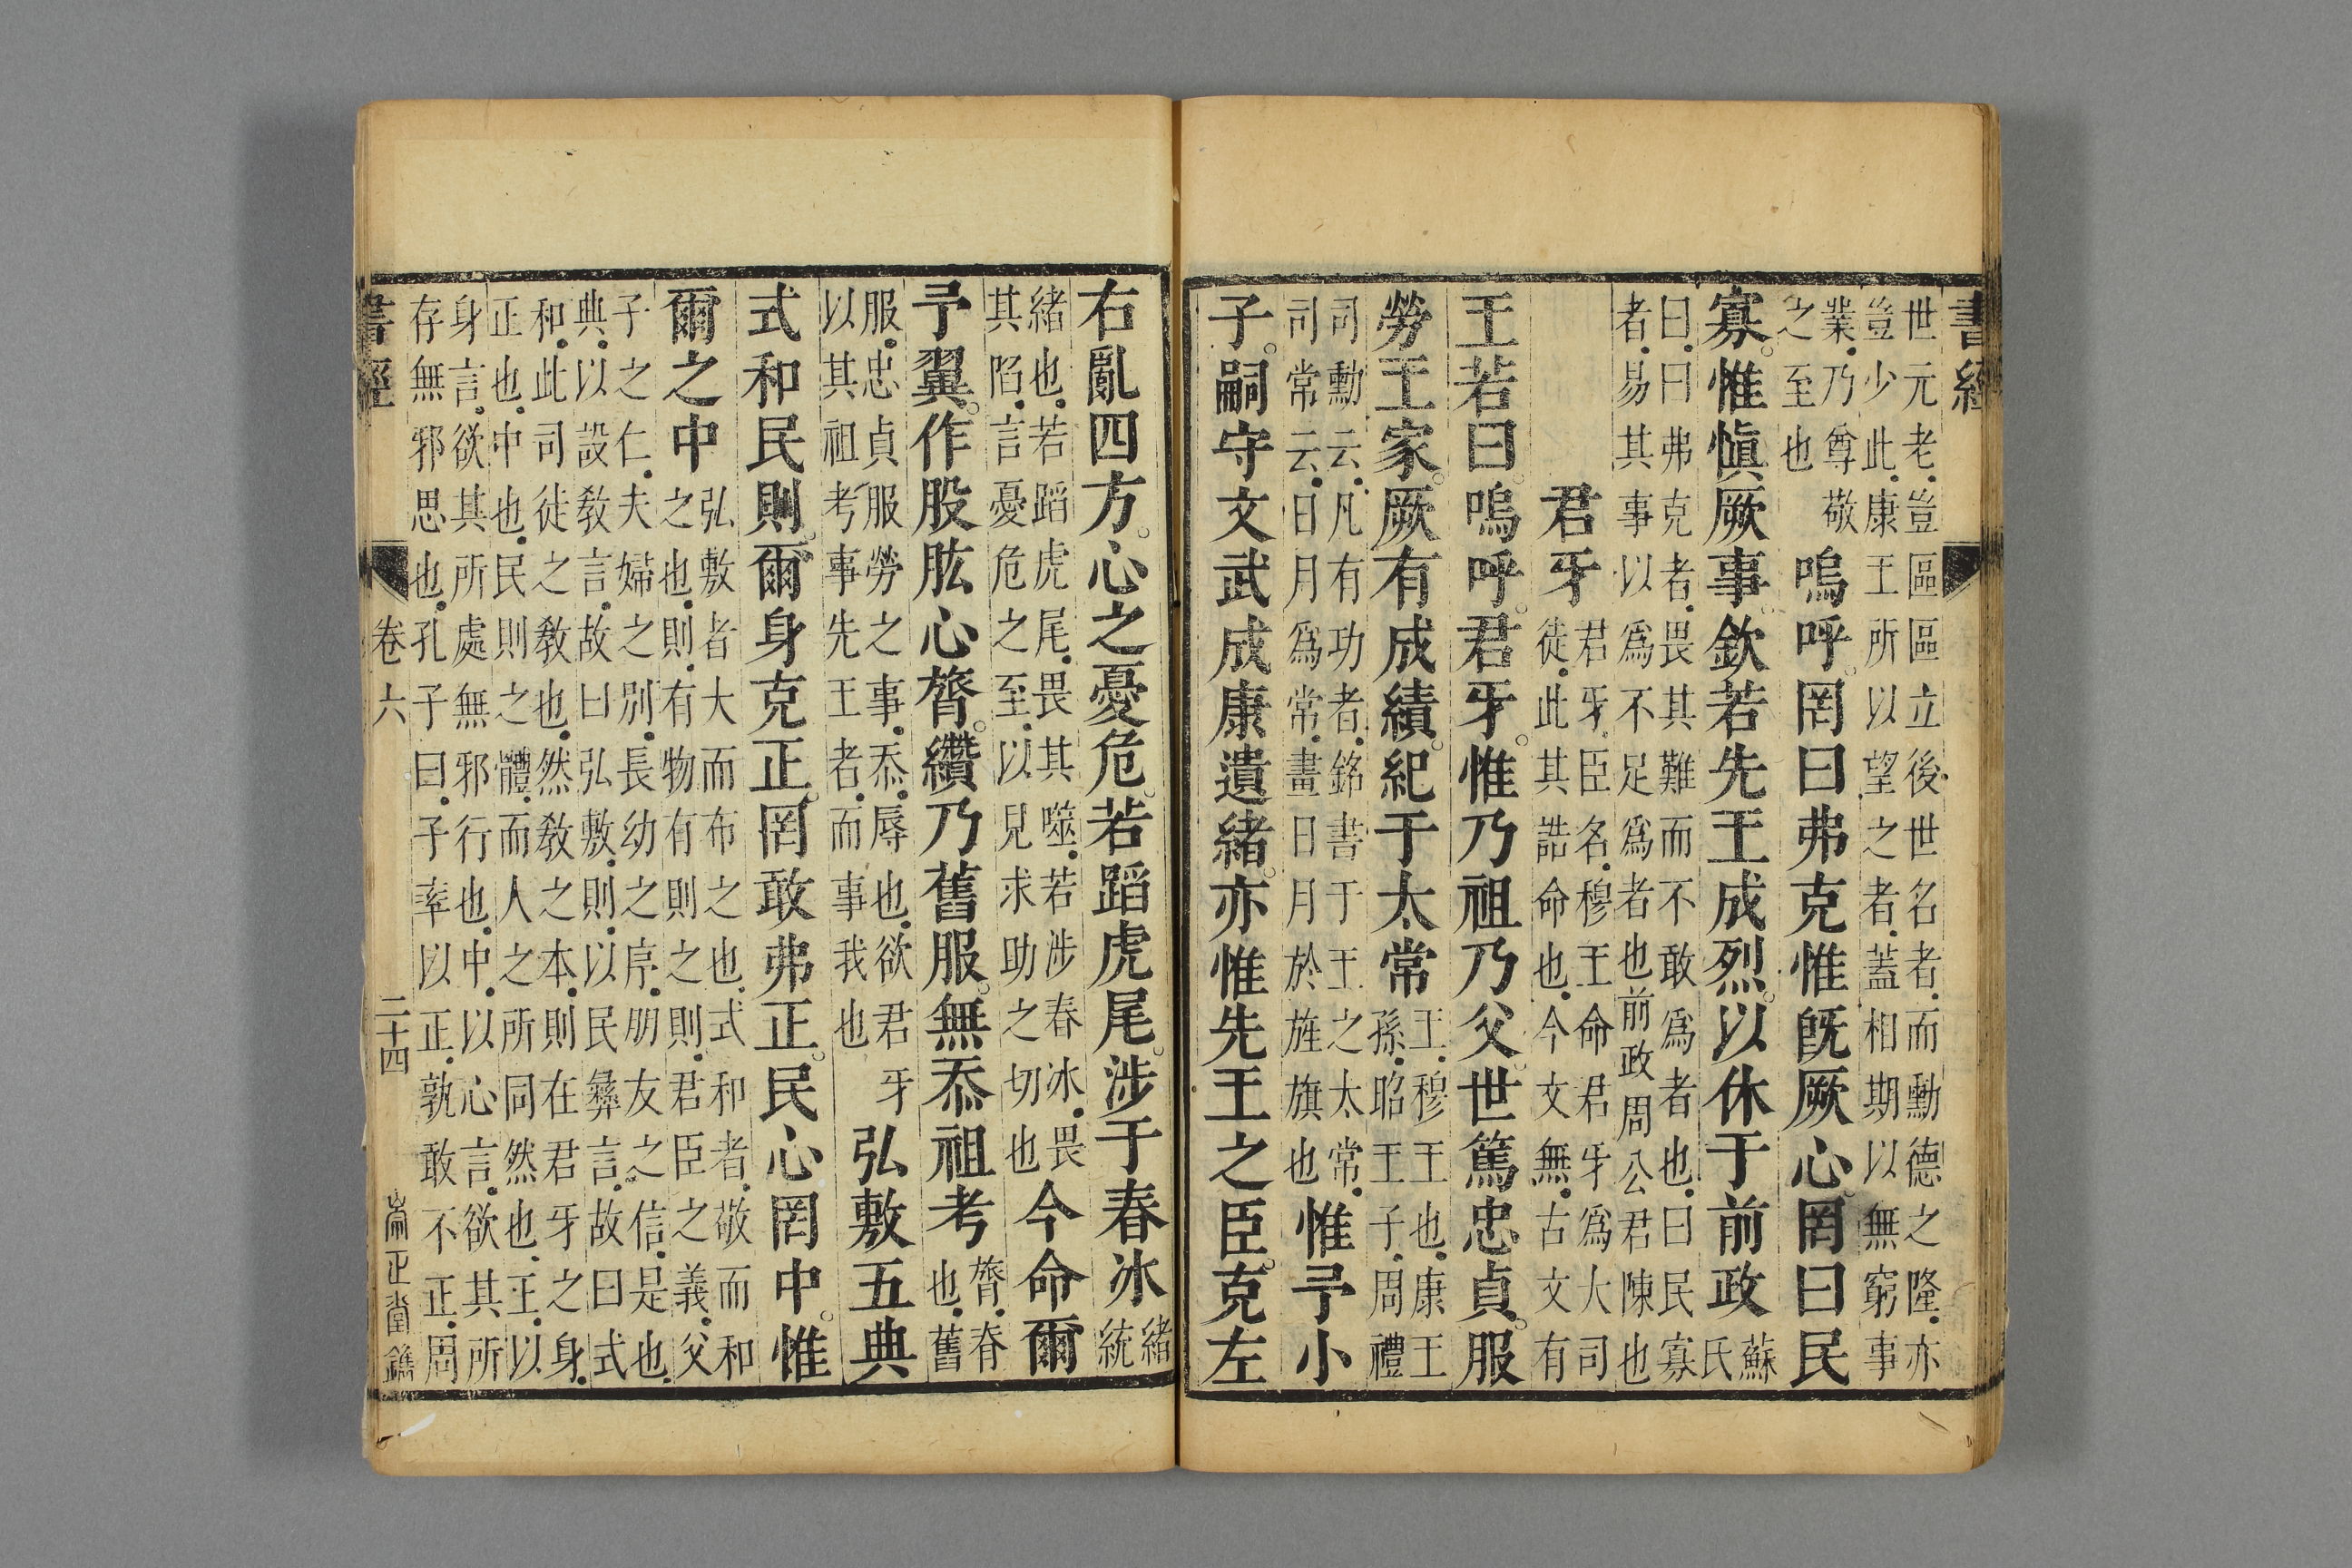 書經
世元老豈區區立後世名者而勳德之隆亦
豈少此康王所以望之者蓋相期以無窮事
業乃尊敬
之至也
嗚呼罔曰弗克惟旣厥心罔曰民
寡惟愼厥事欽若先王成烈以休于前政
蘇
氏
曰曰弗克者畏其難而不敢爲者也曰民寡
者易其事以爲不足爲者也前政周公君陳也
君牙
君牙臣名穆王命君牙爲大司
徒此其誥命也今文無古文有
王若曰嗚呼君牙惟乃祖乃父世篤忠貞服
勞王家厥有成績紀于太常
王穆王也康王
孫昭王子周禮
司勳云凡有功者銘書于王之太常
司常云日月爲常畫日月於旌旗也
惟予小
子嗣守文武成康遺緒亦惟先王之臣克左
右亂四方心之憂危若蹈虎尾涉于春冰
緒
統
緒也若蹈虎尾畏其噬若涉春冰畏
其陷言憂危之至以見求助之切也
今命爾
予翼作股肱心膂纘乃舊服無忝祖考
膂脊
也舊
服忠貞服勞之事忝辱也欲君牙
以其祖考事先王者而事我也
弘敷五典
式和民則爾身克正罔敢弗正民心罔中惟
爾之中
弘敷者大而布之也式和者敬而和
之也則有物有則之則君臣之義父
子之仁夫婦之別長幼之序朋友之信是也
典以設敎言故曰弘敷則以民彝言故曰式
和此司徒之敎也然敎之本則在君牙之身
正也中也民則之體而人之所同然也王以
身言欲其所處無邪行也中以心言欲其所
存無邪思也孔子曰子率以正孰敢不正周
書經 卷六 二十四 崇正堂鐫